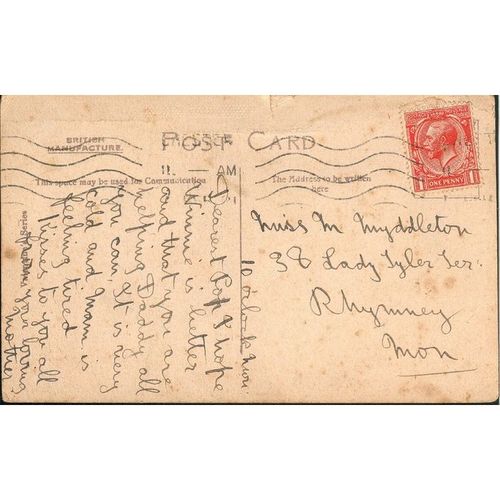 BRITISH
MANUFACTURE.
POST CARD
11. AM
This space may be used for Communication
The Address to be written
here
ONE PENNY
Series
10 oclock
Dearest Pop I hope
Winnie is better
and that you are
helping Daddy all
you can It is very
cold and Mam is
feeling tired
Kisses to you all
from your loving
Mother
Miss M Myddleton
38 Lady Tyler Ter.
Rhymney
Mon